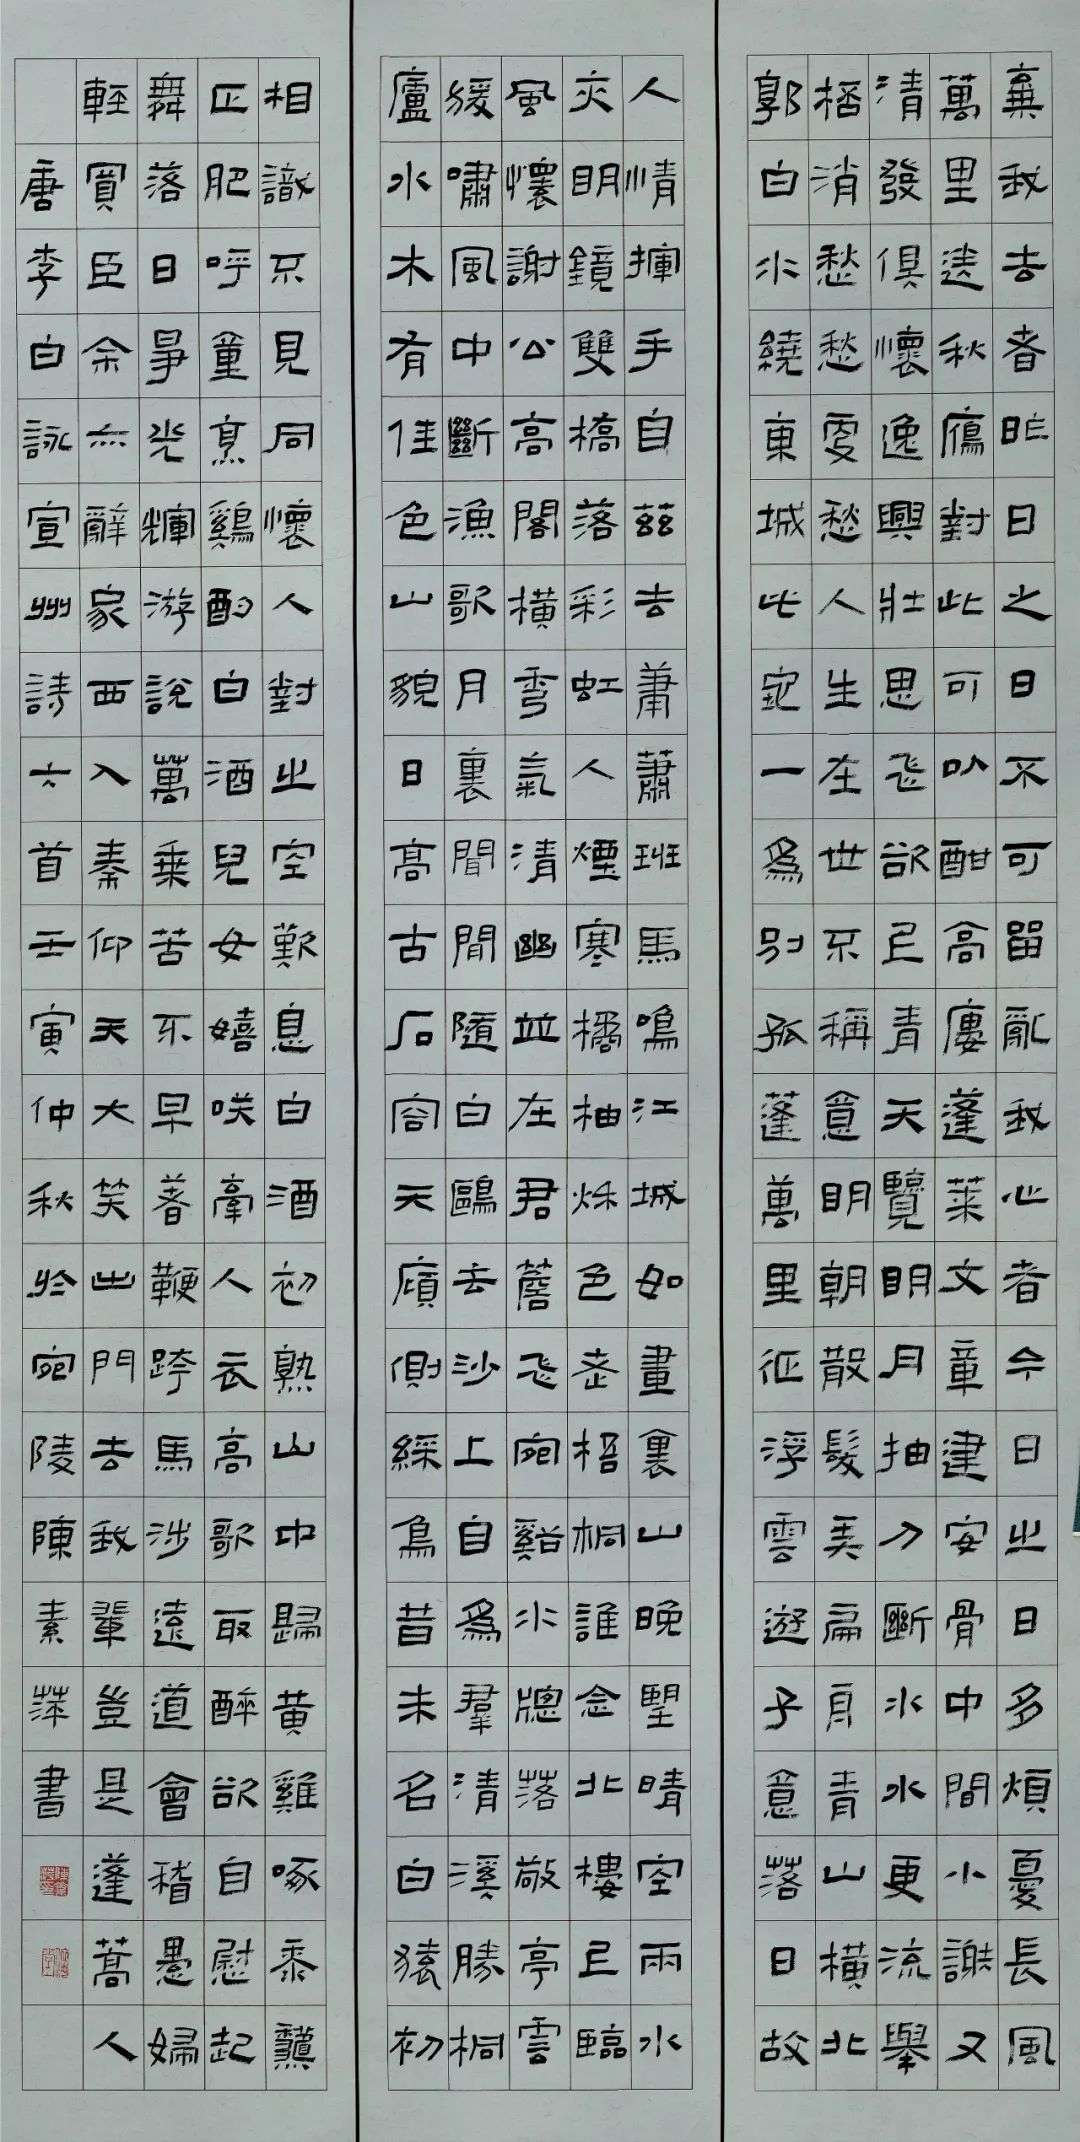 棄我去者昨日之日不可留亂我心者今日之日多煩憂長風
萬里送秋鴈對此可以酣高樓蓬萊文章建安骨中間小謝又
清發俱懷逸興壯思飛欲上青天覽明月抽刀斷水水更流舉
桮消愁愁更愁人生在世不稱意明朝散髮弄扁舟青山橫北
郭白水繞東城此地一為別孤蓬萬里征浮雲遊子意落日故
人情揮手自茲去蕭蕭班馬鳴江城如畫裏山晚望晴空兩水
夾明鏡雙橋落彩虹人煙寒橘柚秋色老梧桐誰念北樓上臨
風懷謝公高閣橫秀氣清幽並在君簷飛宛谿水牕落敬亭雲
猨嘯風中斷漁歌月裏聞閒隨白鷗去沙上自為羣清溪勝桐
廬水木有佳色山貌日高古石容天傾側綵鳥昔未名白猿初
相識不見同懷人對之空歎息白酒初熟山中歸黃雞啄黍龝
正肥呼童烹鷄酌白酒兒女嬉咲牽人衣高歌取醉欲自慰起
舞落日爭光輝游說萬乘苦不早著鞭跨馬涉遠道會稽愚婦
輕買臣余亦辭家西入秦仰天大笑出門去我輩豈是蓬蒿人
唐李白詠宣州詩六首壬寅仲秋於宛陵陳素萍書